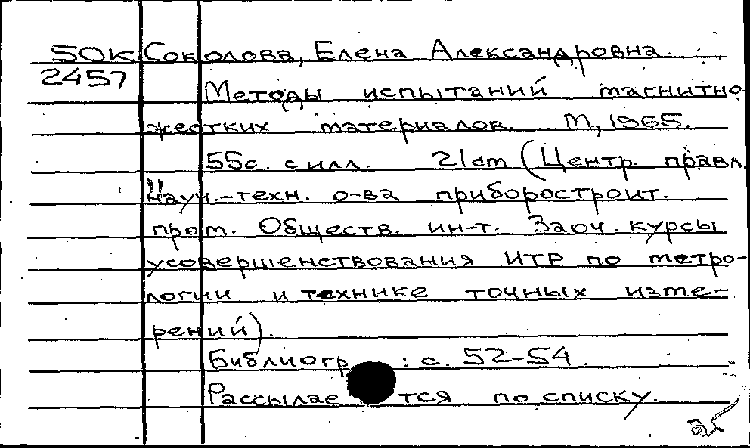 SOK Соколова, Елена Александровна.
2457
Методы испытаний магнитно-
жестких материалов. М., 1965.
55с. с илл. 21cm (Центр. правл.
Науч.-техн. о-ва приборостроит.
пром. Обществ. ин-т. Заоч. курсы
усовершенствования ИТР по метро-
логии и технике точных изме-
рений).
Библиогр.: с. 52-54.
Рассылается по списку.